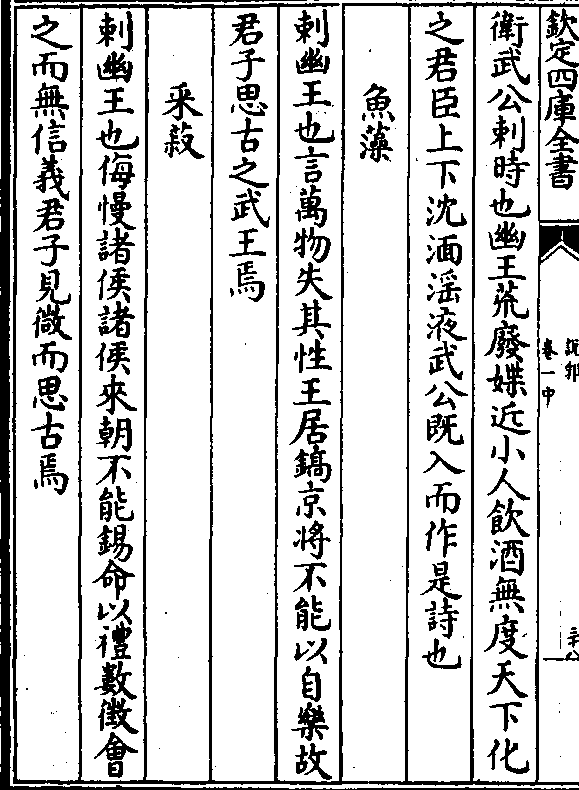 欽定四庫全書
卷一中
衛武公刺時也幽王荒廢媟近小人飲酒無度天下化
之君臣上下沈湎淫液武公既入而作是詩也
魚藻
刺幽王也言萬物失其性王居鎬京將不能以自樂故
君子思古之武王焉
采菽
刺幽王也侮慢諸侯諸侯來朝不能錫命以禮數徵會
之而無信義君子見微而思古焉